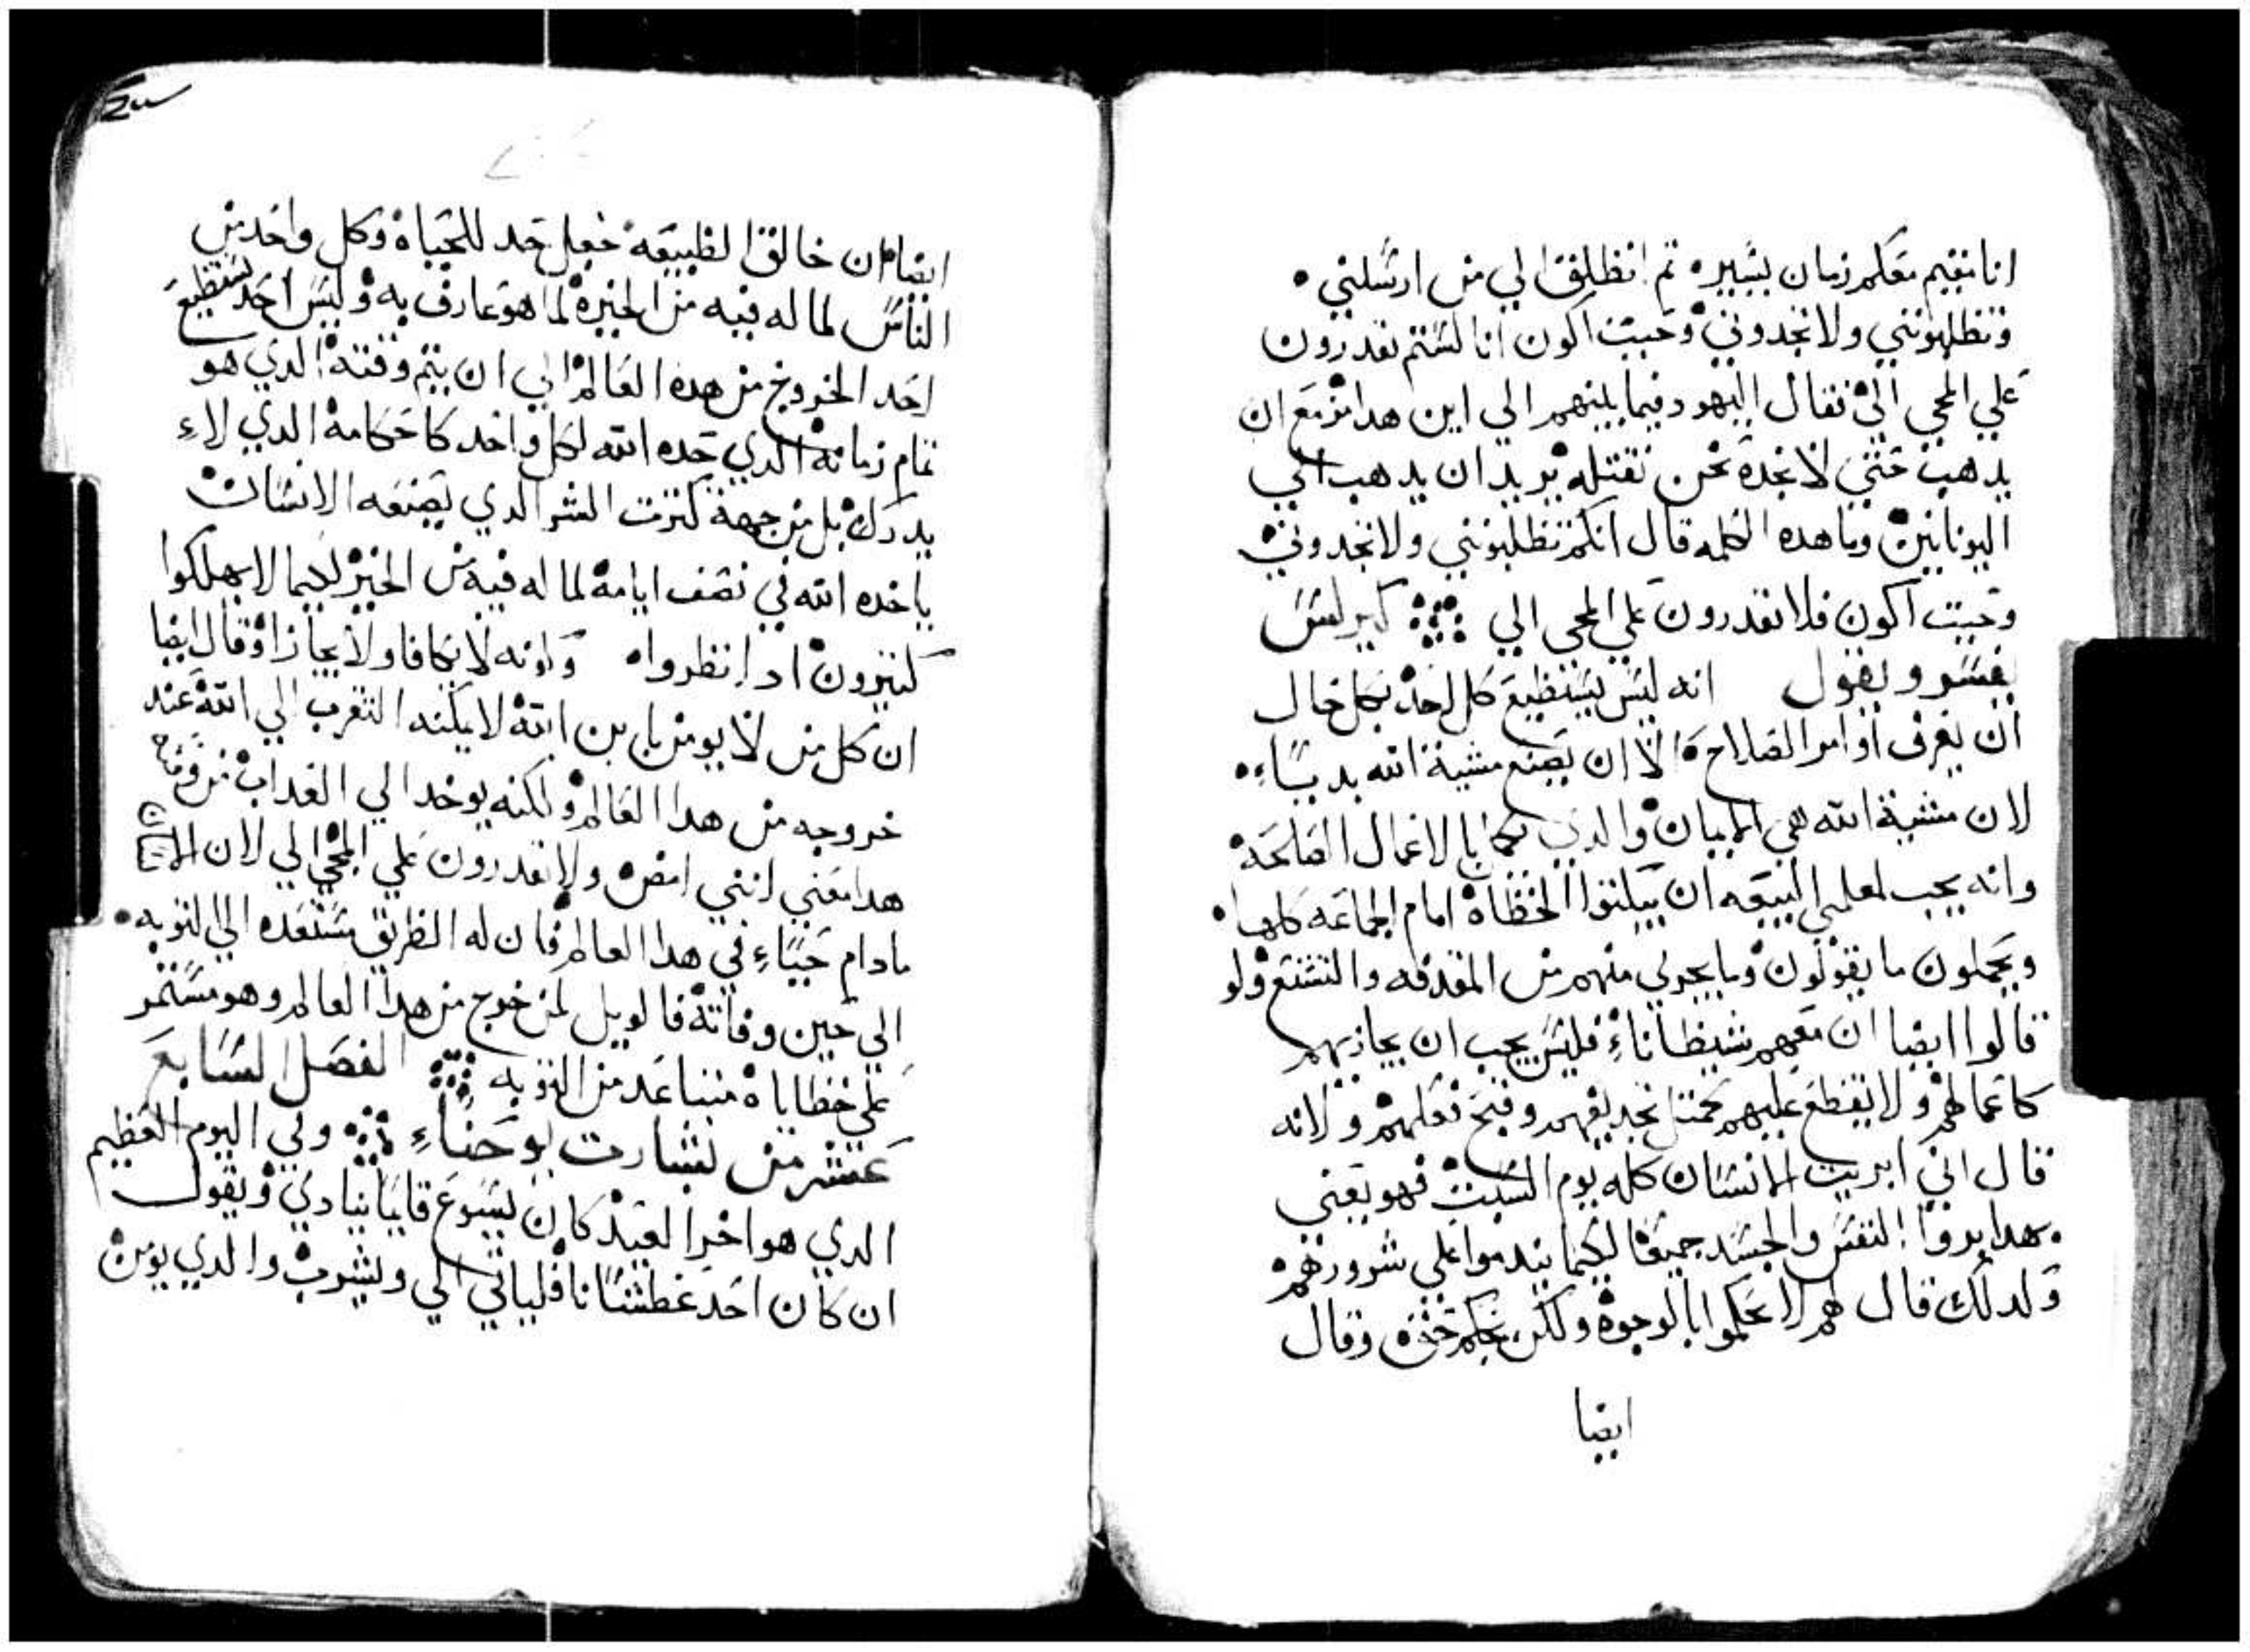 انا مقيم معكم زمان يسير. تم انطلق الي من ارسلني.
وتطلبونني ولا تجدوني وحيت اكون انا لستم تقدرون
علي المجي الي فقال اليهود فيما بينهم الي اين هدا مزمع ان
يدهب حتي لا نجده نحن تقتله يريد ان يدهب الي
اليونانين وما هده الكلمه قال انكم تطلبونني ولا تجدوني
وحيت اكون فلا تقدرون علي المجي الي كيرلس
يفسر ويقول انه ليس يستطيع كل احد بكل حال
ان يعرف اوامر الصلاح الا ان يصنع مشية الله بديا
لان مشية الله هي الايمان والدي بالاعمال الصالحة
وانه يجب لمعلمي البيعه ان يبكتوا الخطاة امام الجماعه كلها.
ويحملون ما يقولون وما يجري منهم من المقدفه والتشنع ولو
قالوا ايضا ان معهم شيطاناء فليس يجب ان يجازيهم
كاعمالهم ولا يقطع عليهم بحمتل تجديفهم وقبح فعلهم ولانه
قال اني ابريت الانسان كله يوم السبت فهو يعني
بهدا يروا النفس والجسد جميعا لكيما يندموا علي شرورهم
ولدلك قال لهم لا تحكموا بالوجوة ولكن بحكم حق وقال
ايضا
ايضا ان خالق الطبيعه جعل حد للحياة وكل واحد من
الناس لما له فيه من الخيرة لما هو عارف به وليس احد يستطيع
احد الخروج من هده العالم الي ان يتم وقته الدي هو
تمام زمانه الدي حده الله لكل واحد كاحكامه الدي لاء
يدرك بل من جهة كترت الشر الدي يصنعه الانسان
ياخده الله في نصف ايامه لما له فيه من الخير لكيما لا يهلكوا
كتيرون ادا نظروا وانه لا يكافا ولا يجازا وقال ايضا
ان كل من لا يومن بابن الله لا يمكنه التقرب الي الله عند
خروجه من هدا العالم ولكنه يوخد الي العداب من
هدا معني انني امض ولا تقدرون علي المجي الي لان
مادام حيا في هدا العالم فان له الطريق مستعده الي التوبه.
الي حين وفاته فالويل لمن خرج من هدا العالم وهو مستمر
علي خطاياة متباعد من التوبه الفصل السابع
عشر من بشارت يوحناء وفي اليوم العظيم
الدي هو اخر العيد كان يسوع قايما ينادي ويقول
ان كان احد عطشانا فلياتي الي ويشرب والدي يومن